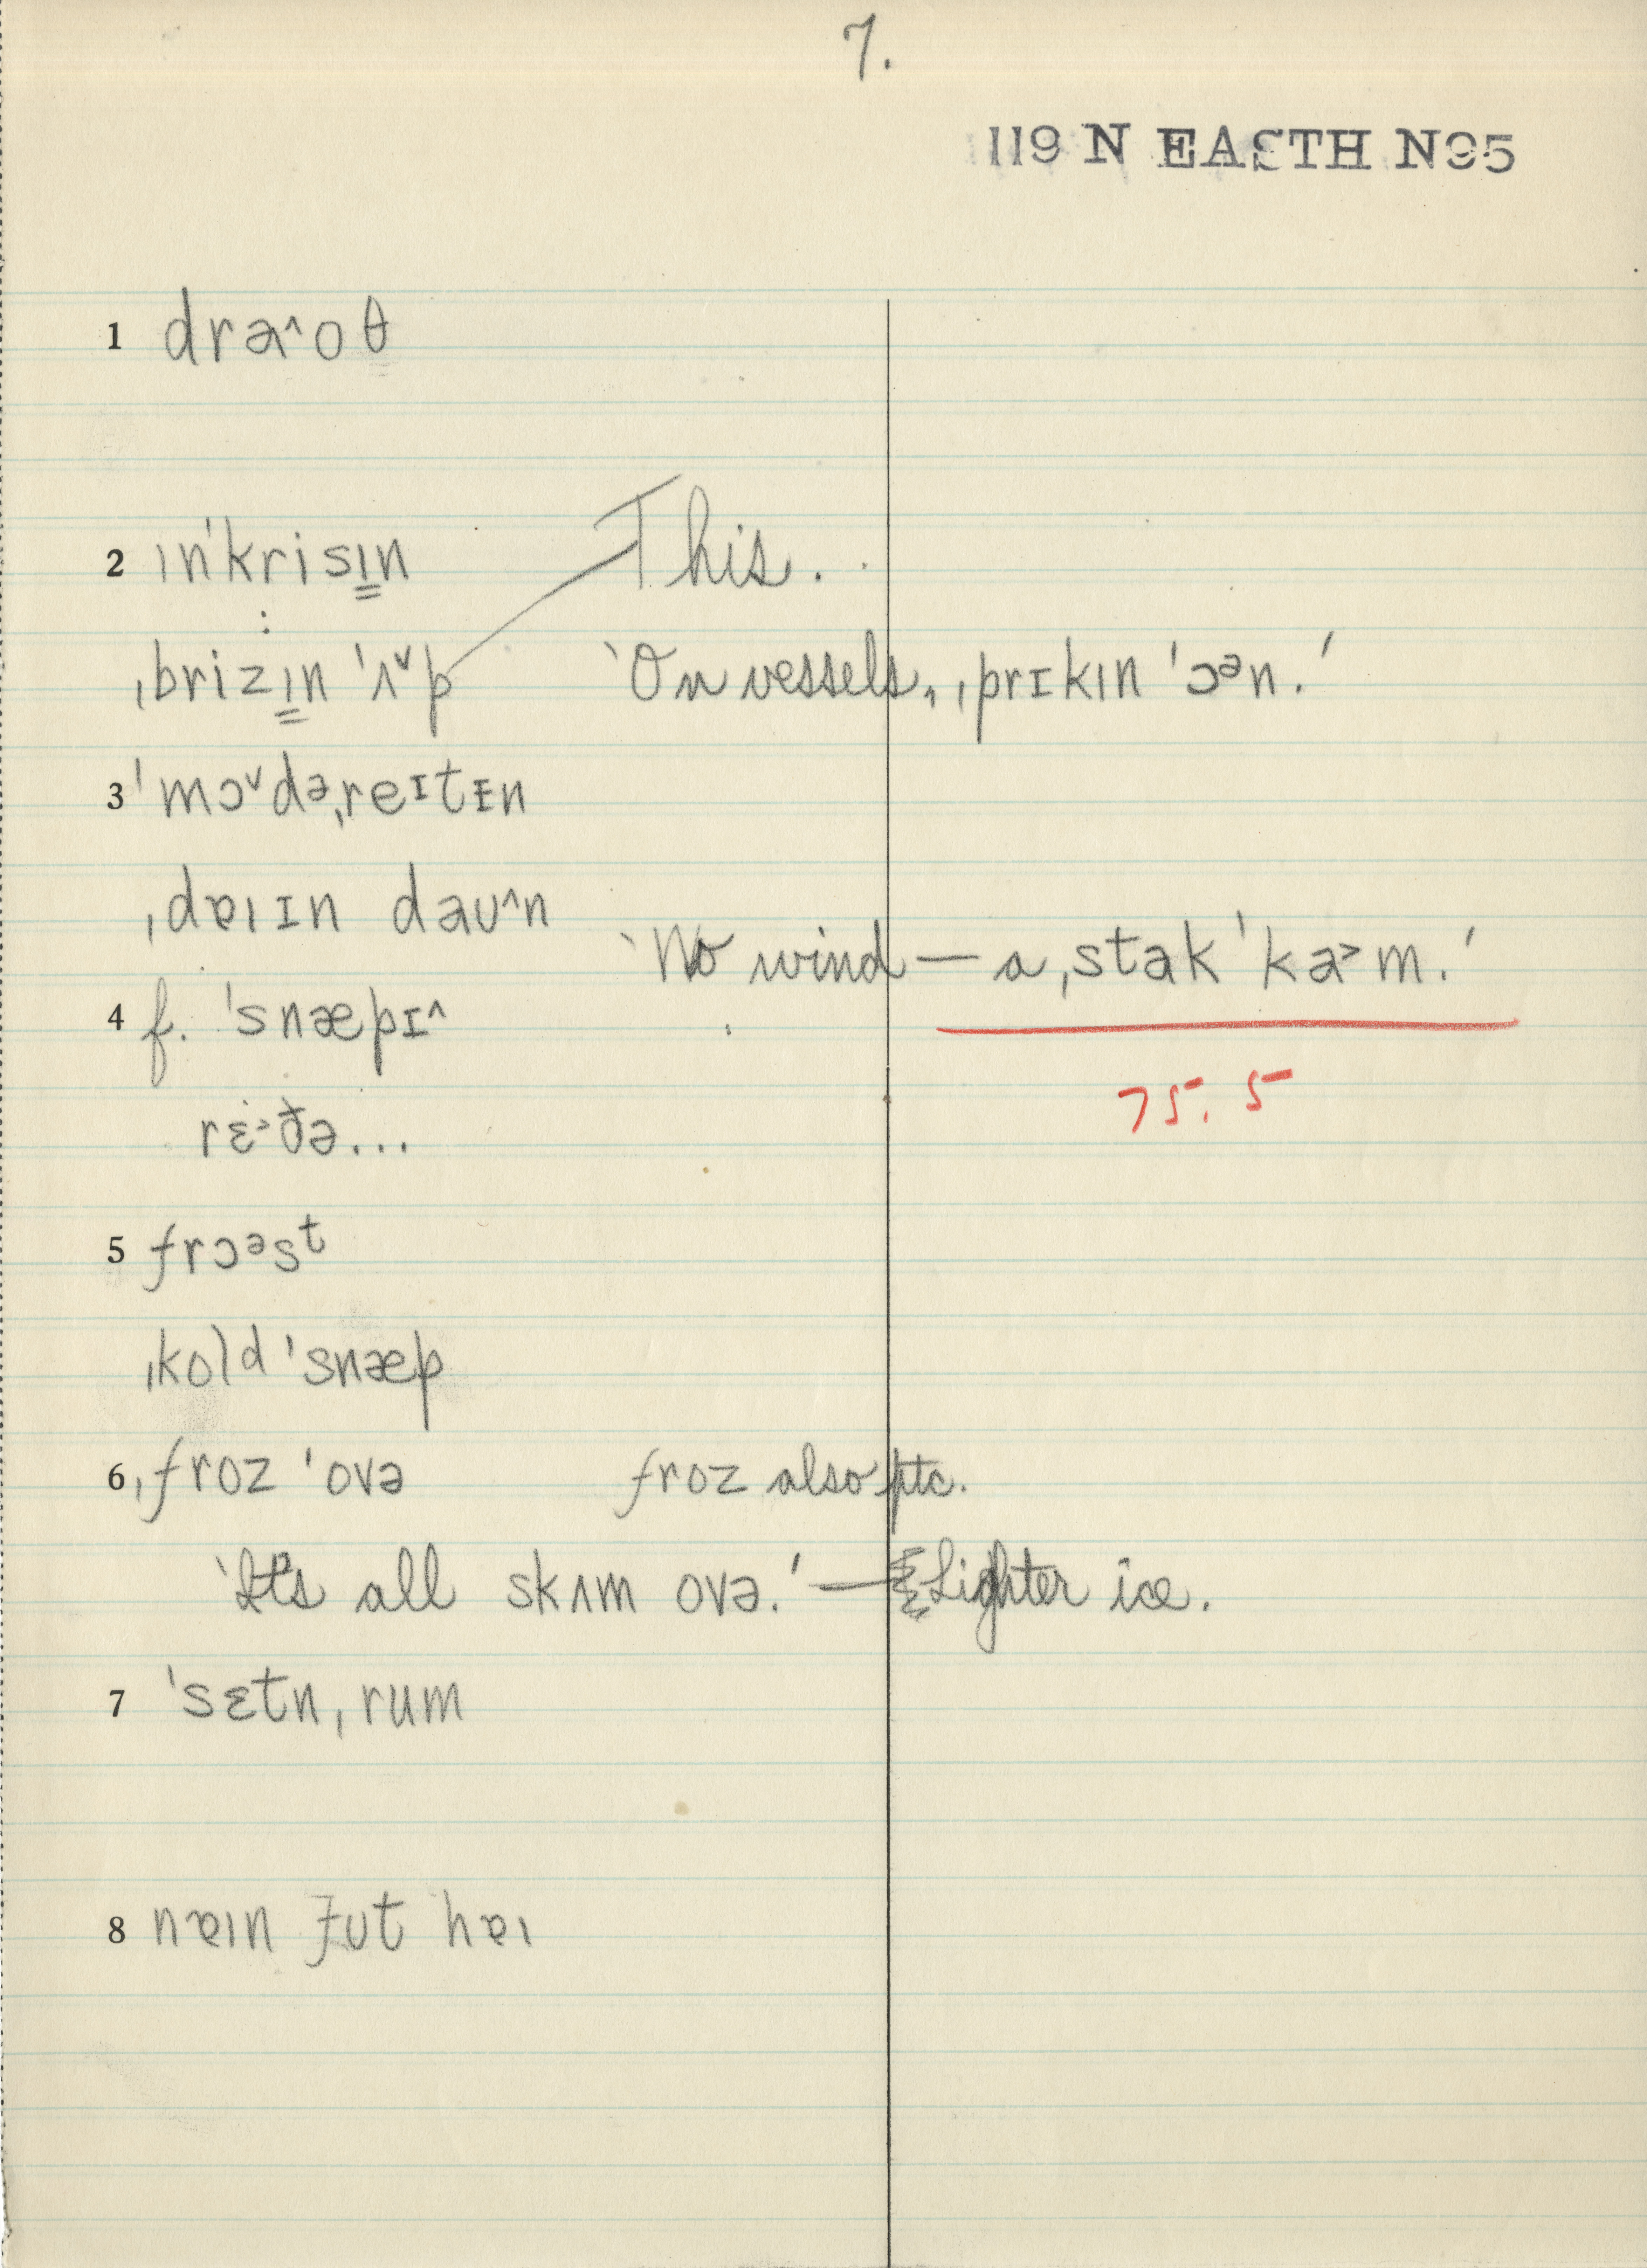 7.
119 N EASTH N95
1 draˆoθ
2 ɪn'krisɪn This.
ˌbrizɪn 'ʌˇp 'On vessels, ˌprɪkɪn 'ɔᵊn.'
3 'mɔˇdəˌreɪtɪn
ˌdɐɪɪn daʊˆn
'No wind — a ˌstak 'ka˃m.'
4 f. 'snæpɪˆ
75.5
rɛ˃ðə...
5 frɔᵊsᵗ
ˌkolᵈ 'snæp
6 ˌfroz 'ovə froz also ptc.
'It's all skɪm ovə.' — Lighter ice.
7 'sɛtnˌrum
8 nɐɪn fʊt hɐɪ